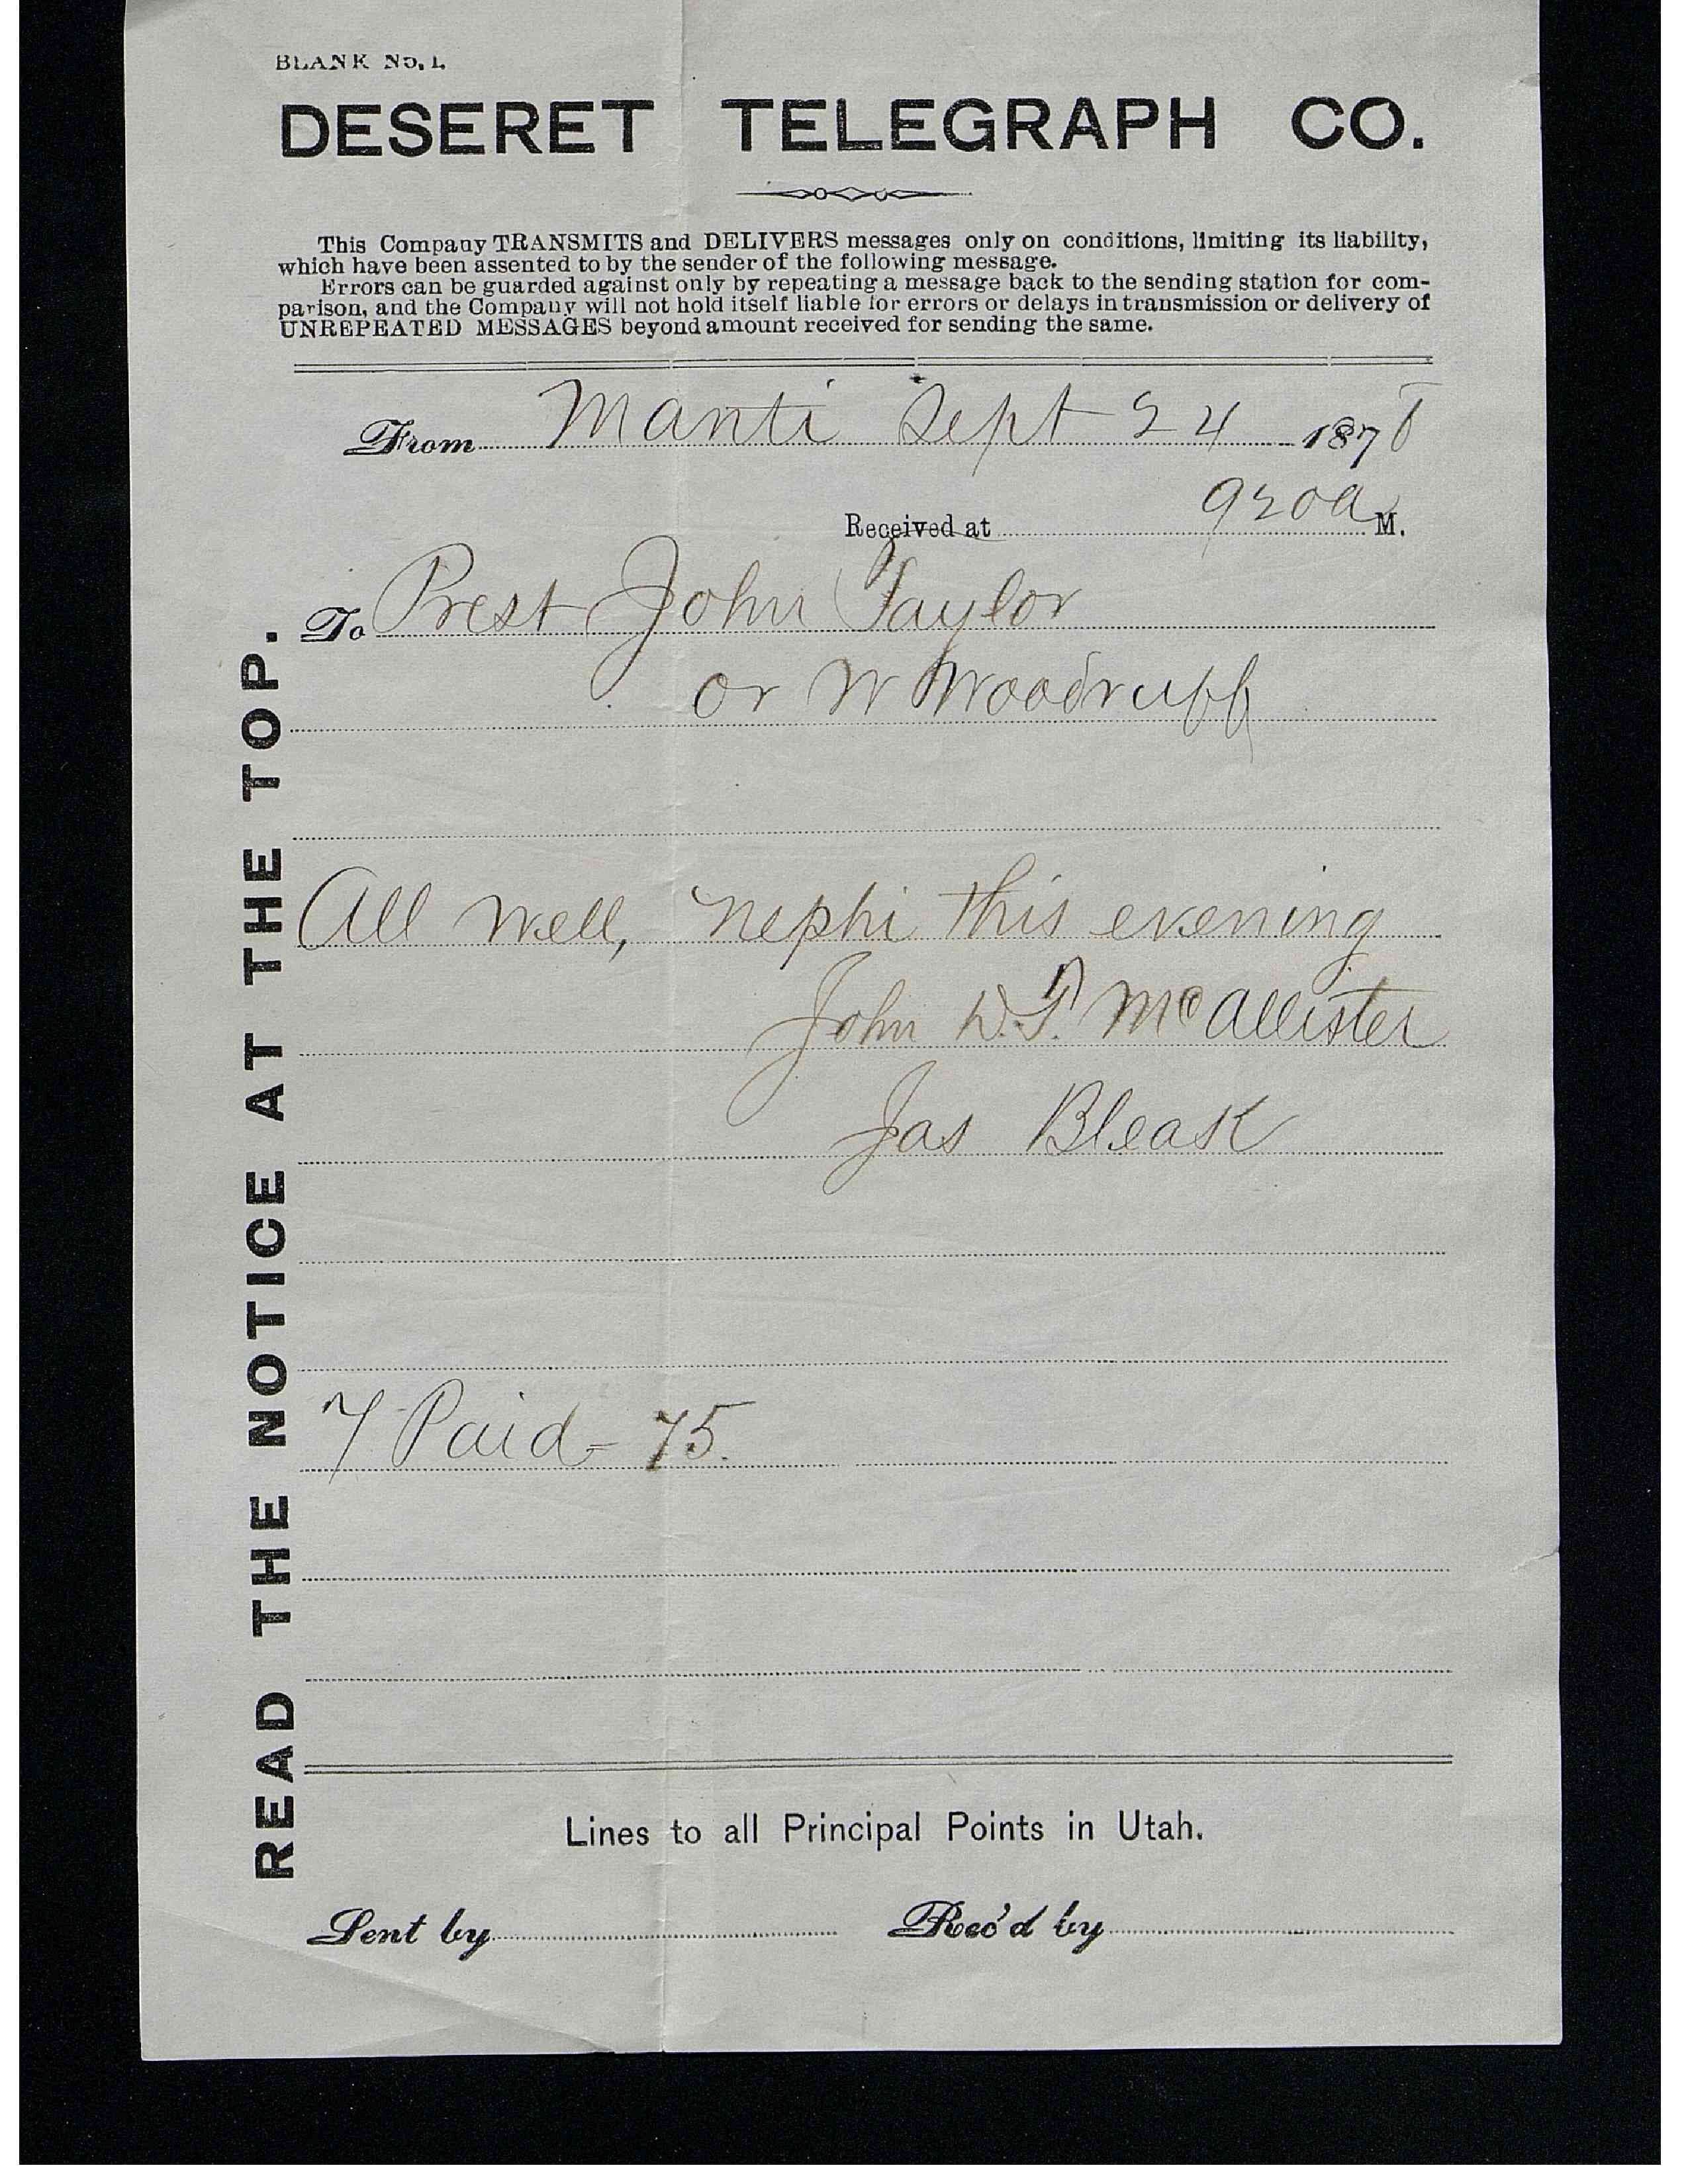 BLANK No. 1.
DESERET TELEGRAPH CO.
This Company TRANSMITS and DELIVERS messages only on conditions, limiting its liability,
which have been assented to by the sender of the following message.
Errors can be guarded against only by repeating a message back to the sending station for com-
parison, and the Company will not hold itself liable for errors or delays in transmission or delivery of
UNREPEATED MESSAGES beyond amount received for sending the same.
From Manti Sept 24 1878
Received at 920 a M.
To Prest John Taylor
or W Woodruff
All well, Nephi this evening
John D.T. McAllister
Jas Bleak
7 Paid - 75.
READ THE NOTICE AT THE TOP.
Lines to all Principal Points in Utah.
Sent by Rec'd by